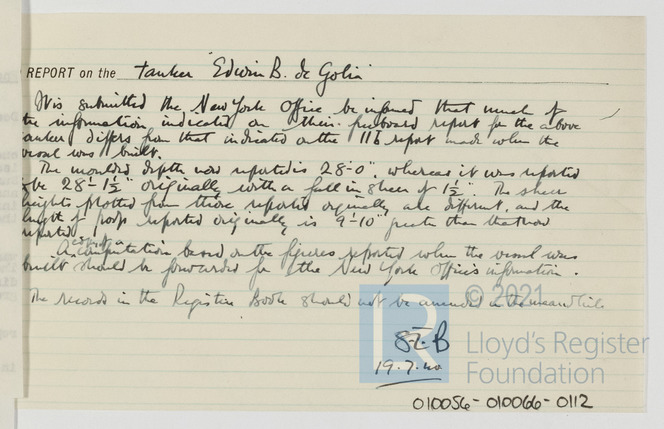 REPORT on the tanker "Edwin B. de Golia"
It is submitted the New York Office be informed that much of
the information indicated on their freeboard report for the above
tanker differs from that indicated on the 11b report made when the
vessel was built.
The moulded depth now reported is 28'-0", whereas it was reported
to be 28'-1½" originally with a fall in sheer of 1½". The sheer
heights plotted from those reported originally are different, and the
length of poop reported originally is 9'-10" greater than that now
reported.
A computation based on the figures reported when the vessel was
built should be forwarded for the New York Office's information.
The records in the Register Book should not be amended in the meanwhile
© 2021
LR
Lloyd's Register
Foundation
19.7.40
010056-010066-0112